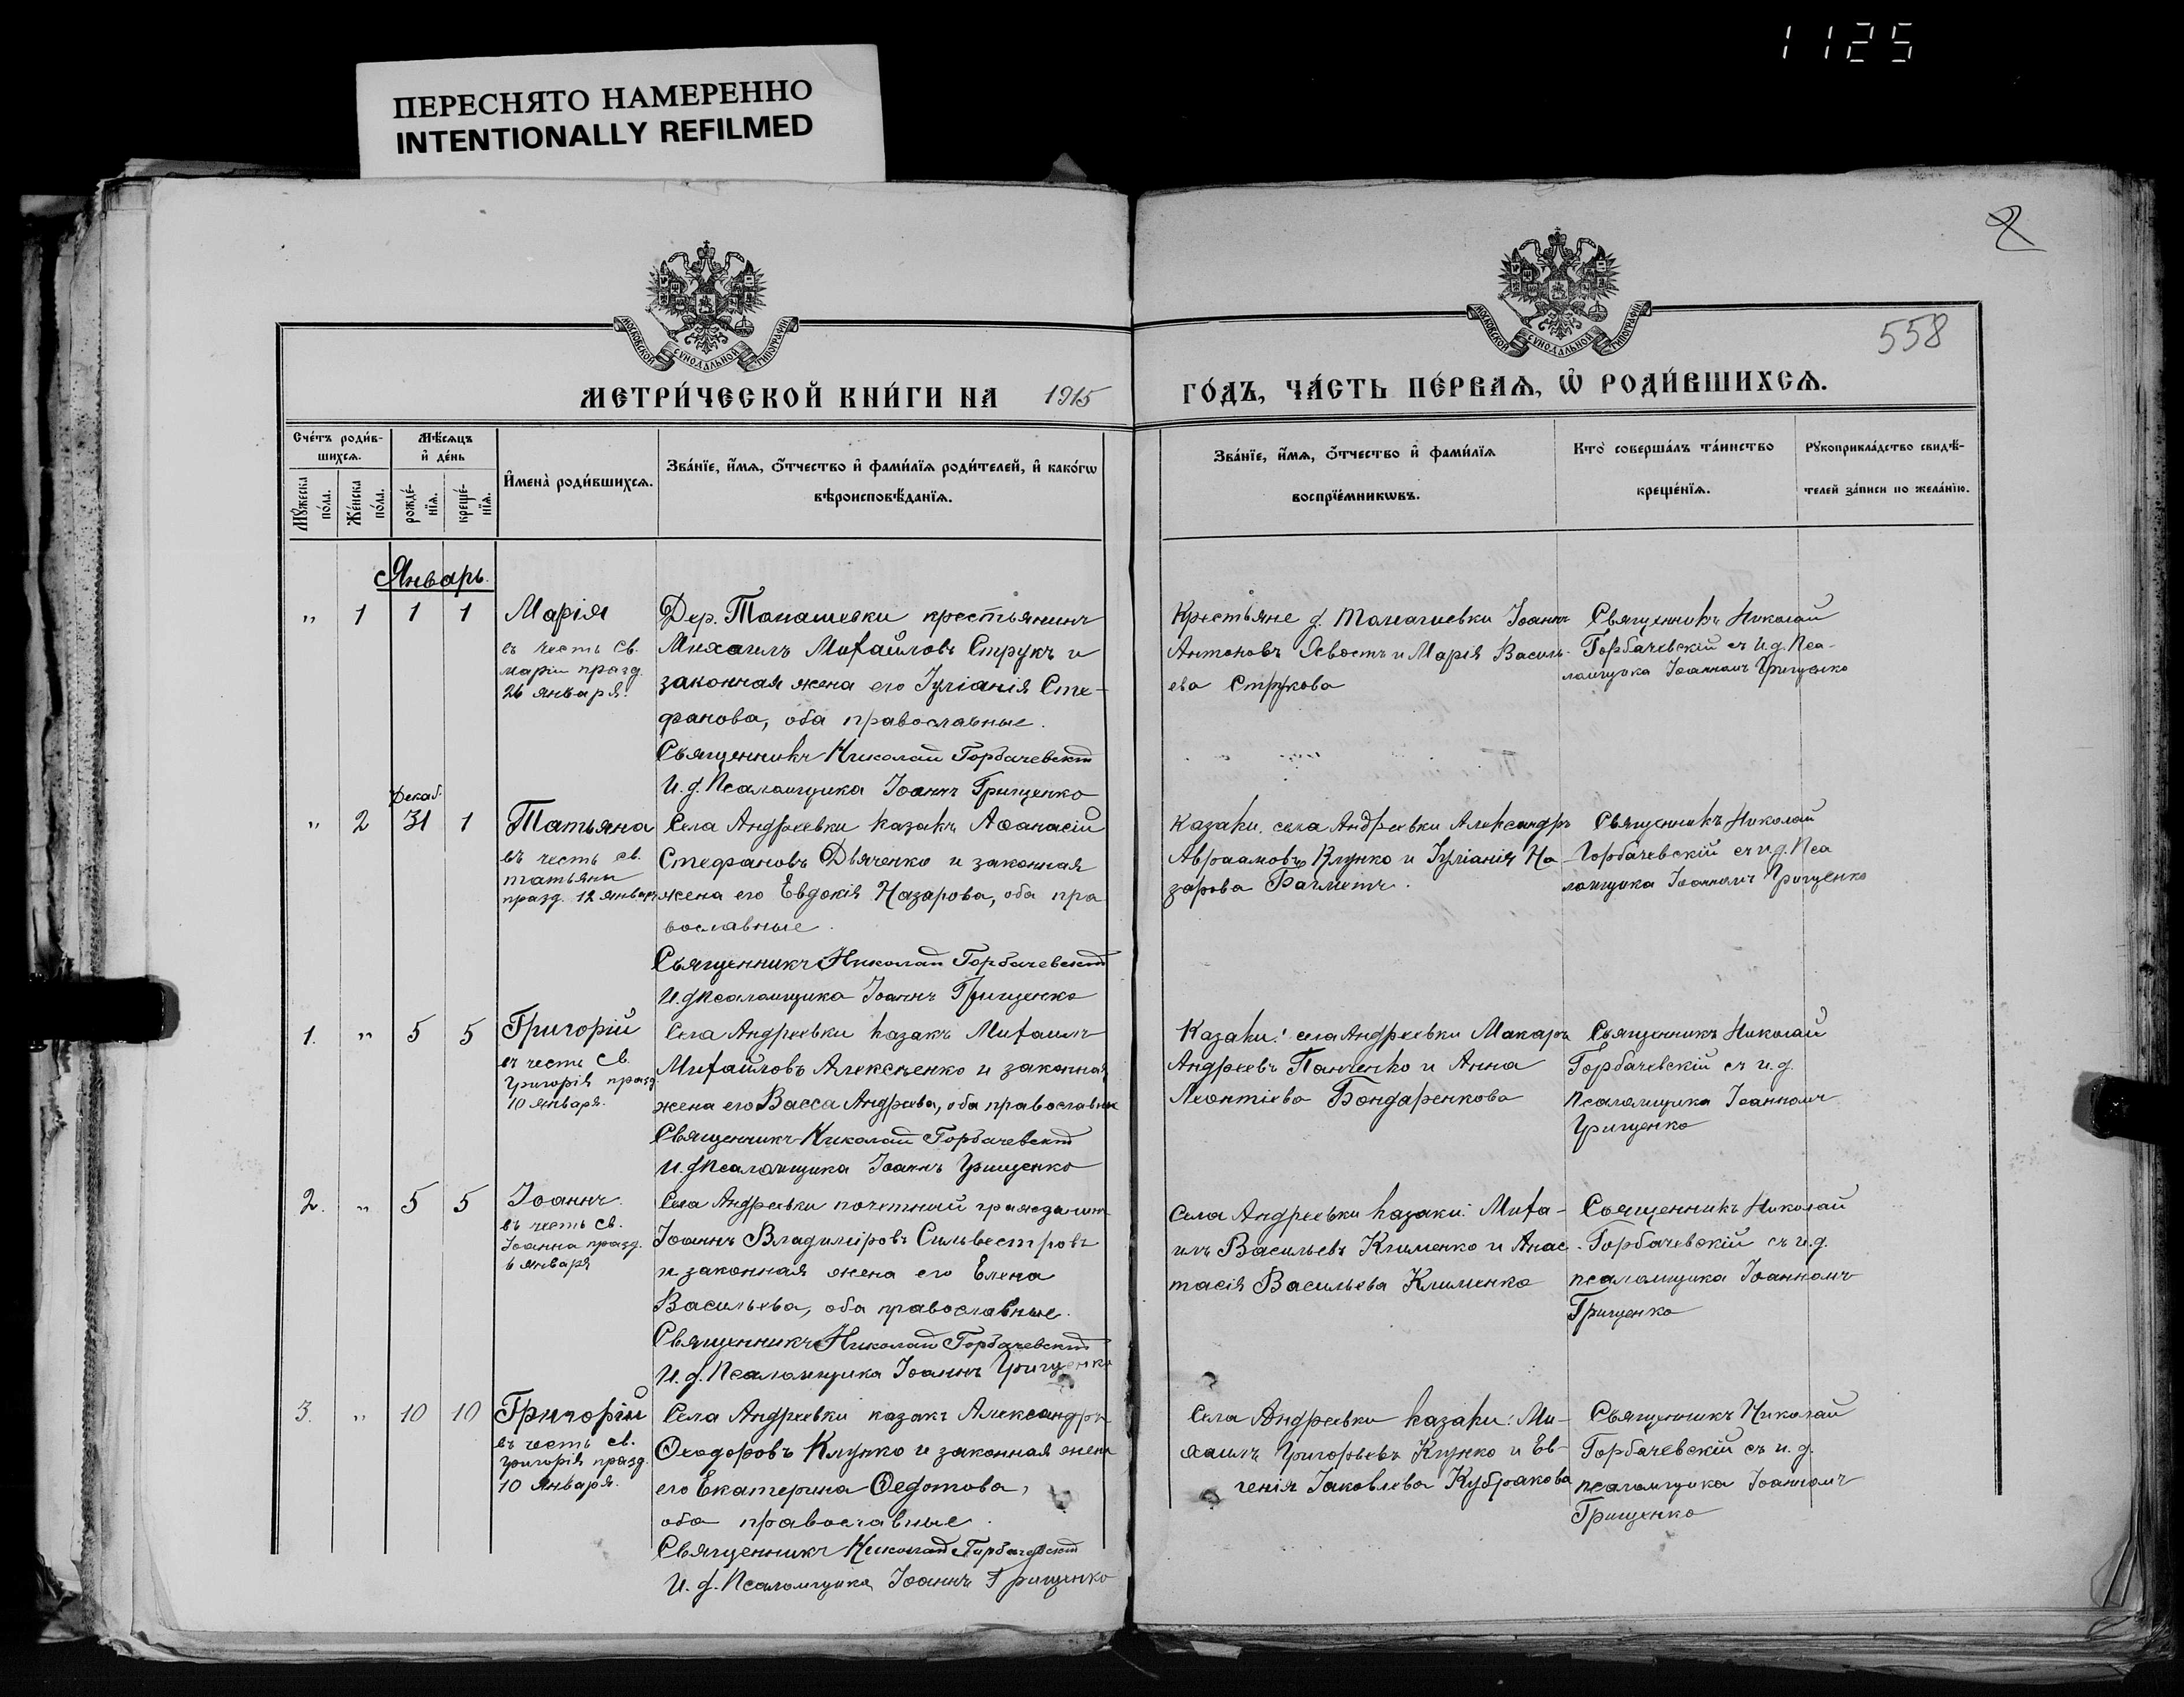 1125
ПЕРЕСНЯТО НАМЕРЕННО
INTENTIONALLY REFILMED
2
558
МОСКОВСКОЙ СѴНОДАЛЬНОЙ ТИПОГРАФІИ
МОСКОВСКОЙ СѴНОДАЛЬНОЙ ТИПОГРАФІИ
МЕТРИ́ЧЕСКОЙ КНИ́ГИ НА 1915 ГО́ДЪ, ЧА́СТЬ ПЕ́РВАѦ, Ѽ РОДИ́ВШИХСѦ.
Сче́тъ роди́в-
шихсѧ.
Мꙋ́жеска по́ла.
Же́нска по́ла.
Мѣ́сѧцъ
и҆ де́нь
рожде́-
нїѧ.
креще́-
нїѧ.
И҆мена̀ роди́вшихсѧ.
Зва́нїе, и҆́мѧ, ѻ҆́тчество и҆ фами́лїѧ роди́телей, и҆ како́гѡ
вѣроисповѣ́данїѧ.
Зва́нїе, и҆́мѧ, ѻ҆́тчество и҆ фами́лїѧ
воспрїе́мникѡвъ.
Кто̀ соверша́лъ та́инство
креще́нїѧ.
Рꙋкоприкла́дство свидѣ́-
телей за́писи по жела́нїю.
Январь.
" 1 1 1
Марія
въ честь св.
маріи празд.
26 января.
Дер. Томашевки крестьянинъ
Михаилъ Михайловъ Струкъ и
законная жена его Іуліанія Сте-
фанова, оба православные.
Священникъ Николай Горбачевскій
И. д. Псаломщика Іоаннъ Грищенко
Крестьяне д. Томашевки Іоаннъ
Антоновъ Хвостъ и Марія Василь-
ева Струкова
Священникъ Николай
Горбачевскій съ и. д. Пса-
ломщика Іоанномъ Грищенко
Декаб.
" 2 31 1
Татьяна
въ честь св.
татьяны
празд. 12 января
Села Андреевки казакъ Аѳанасій
Стефановъ Дьяченко и законная
жена его Евдокія Назарова, оба пра
вославные.
Священникъ Николай Горбачевскій
И. д. псаломщика Іоаннъ Грищенко
Казаки села Андреевки Александръ
Авраамовъ Клунко и Іуліанія На-
зарова Бахметъ.
Священникъ Николай
Горбачевскій съ и. д. Пса
ломщика Іоанномъ Грищенко
1. " 5 5
Григорій
въ честь св.
Григорія празд.
10 января.
Села Андреевки казакъ Михаилъ
Михайловъ Алексѣенко и законная
жена его Васса Андреева, оба православные
Священникъ Николай Горбачевскій
И. д. псаломщика Іоаннъ Грищенко
Казаки: села Андреевки Макаръ
Андреевъ Панченко и Анна
Леонтіева Бондаренкова
Священникъ Николай
Горбачевскій съ и. д.
псаломщика Іоанномъ
Грищенко
2. " 5 5
Іоаннъ
въ честь св.
Іоанна празд.
6 января
Села Андреевки почетный гражданинъ
Іоаннъ Владиміровъ Сильвестровъ
и законная жена его Елена
Васильева, оба православные.
Священникъ Николай Горбачевскій
И. д. Псаломщика Іоаннъ Грищенко
Села Андреевки казаки: Миха-
илъ Васильевъ Клименко и Анас-
тасія Васильева Клименко
Священникъ Николай
Горбачевскій съ и. д.
псаломщика Іоанномъ
Грищенко
3. " 10 10
Григорій
въ честь св.
григорія празд.
10 января.
Села Андреевки казакъ Александръ
Ѳеодоровъ Клунко и законная жена
его Екатерина Ѳедотова,
оба православные.
Священникъ Николай Горбачевскій
И. д. Псаломщика Іоаннъ Грищенко
Села Андреевки казаки: Ми-
хаилъ Григорьевъ Клунко и Ев-
генія Іаковлева Кубракова
Священникъ Николай
Горбачевскій съ и. д.
псаломщика Іоанномъ
Грищенко